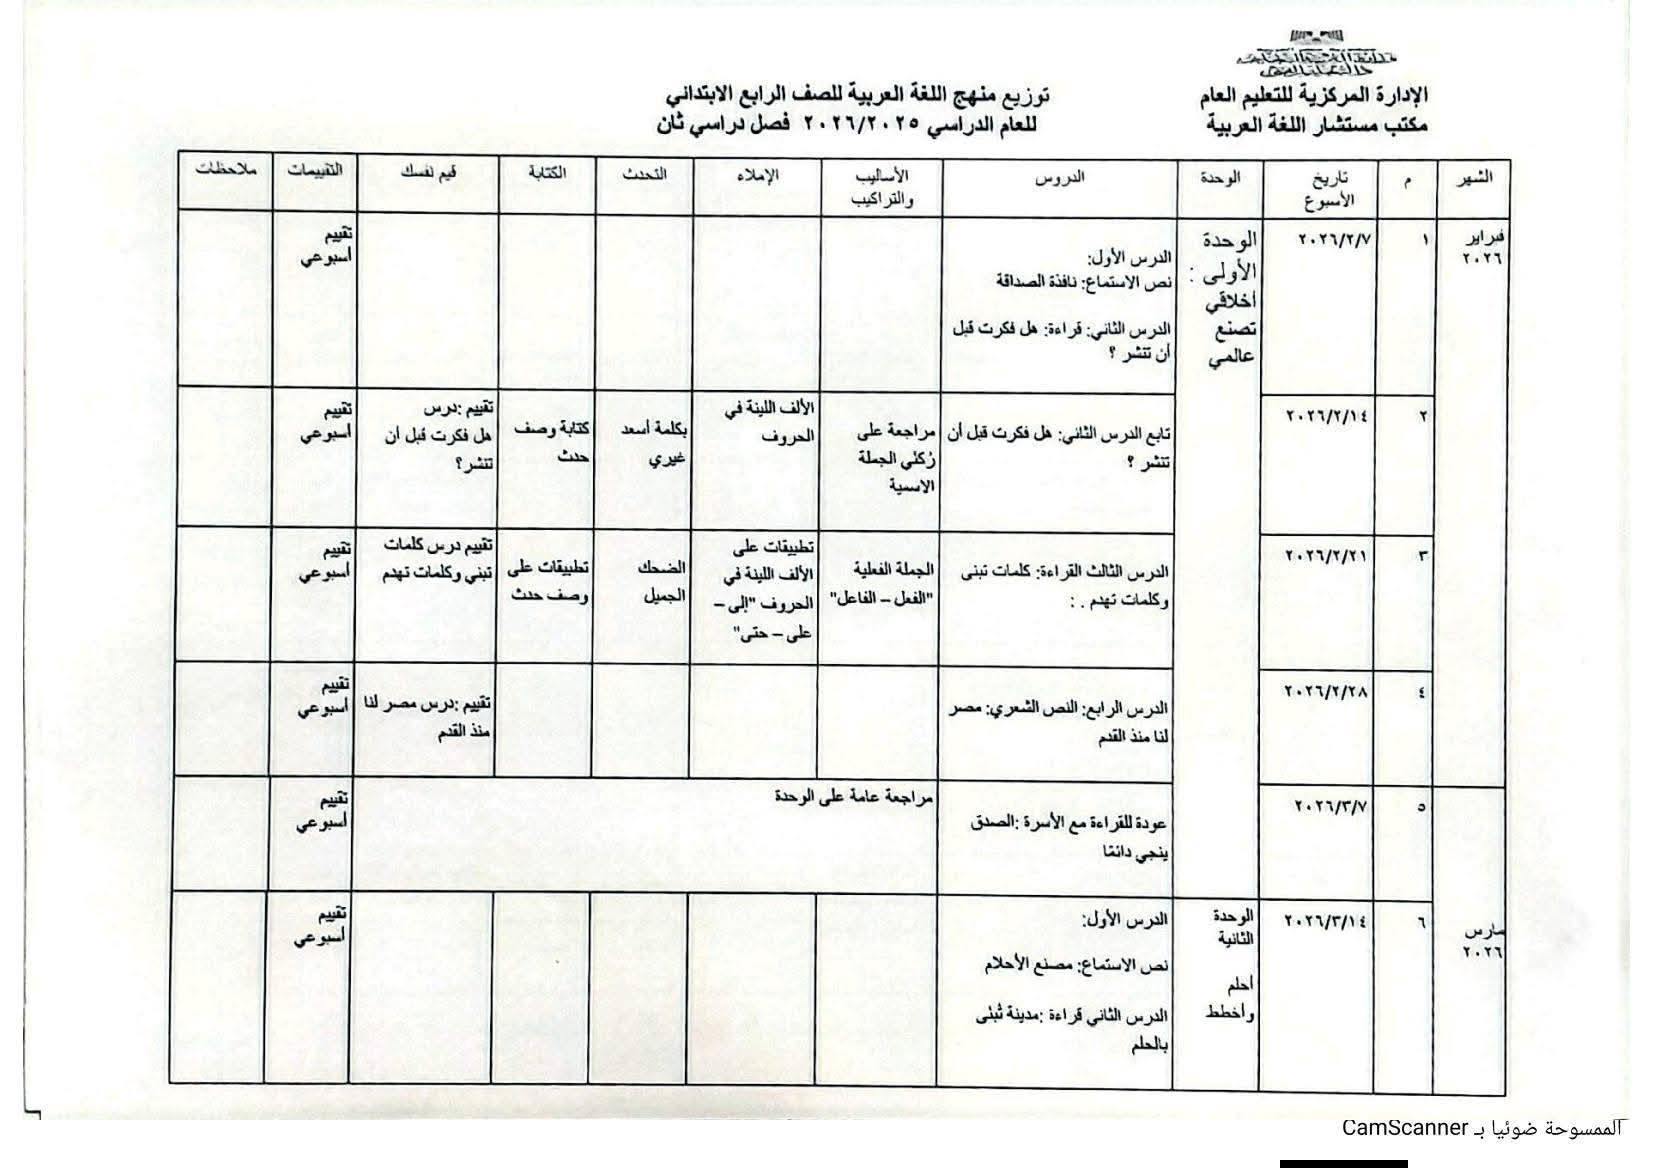 الإدارة المركزية للتعليم العام
مكتب مستشار اللغة العربية
توزيع منهج اللغة العربية للصف الرابع الابتدائي
للعام الدراسي ٢٠٢٦/٢٠٢٥ فصل دراسي ثان
الشهر
م
تاريخ
الأسبوع
الوحدة
الدروس
الأساليب
والتراكيب
الإملاء
التحدث
الكتابة
قيم نفسك
التقييمات
ملاحظات
فبراير
٢٠٢٦
١
٢٠٢٦/٢/٧
الوحدة
الأولى :
أخلاقي
تصنع
عالمي
الدرس الأول:
نص الاستماع: نافذة الصداقة
الدرس الثاني: قراءة: هل فكرت قبل
أن تنشر ؟
تقييم
أسبوعي
٢
٢٠٢٦/٢/١٤
تابع الدرس الثاني: هل فكرت قبل أن
تنشر ؟
مراجعة على
رُكني الجملة
الاسمية
الألف اللينة في
الحروف
بكلمة أسعد
غيري
كتابة وصف
حدث
تقييم :درس
هل فكرت قبل أن
تنشر؟
تقييم
أسبوعي
٣
٢٠٢٦/٢/٢١
الدرس الثالث القراءة: كلمات تبنى
وكلمات تهدم . :
الجملة الفعلية
"الفعل – الفاعل"
تطبيقات على
الألف اللينة في
الحروف "إلى –
على – حتى"
الضحك
الجميل
تطبيقات على
وصف حدث
تقييم درس كلمات
تبني وكلمات تهدم
تقييم
أسبوعي
٤
٢٠٢٦/٢/٢٨
الدرس الرابع: النص الشعري: مصر
لنا منذ القدم
تقييم :درس مصر لنا
منذ القدم
تقييم
أسبوعي
٥
٢٠٢٦/٣/٧
عودة للقراءة مع الأسرة :الصدق
ينجي دائمًا
مراجعة عامة على الوحدة
تقييم
أسبوعي
مارس
٢٠٢٦
٦
٢٠٢٦/٣/١٤
الوحدة
الثانية
أحلم
وأخطط
الدرس الأول:
نص الاستماع: مصنع الأحلام
الدرس الثاني قراءة :مدينة تُبنى
بالحلم
تقييم
أسبوعي
الممسوحة ضوئيا بـ CamScanner